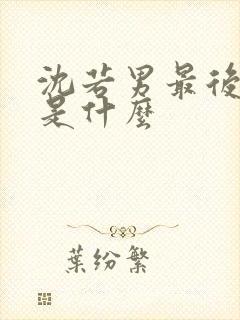 沈若男最後
是什麼
葉紛繁